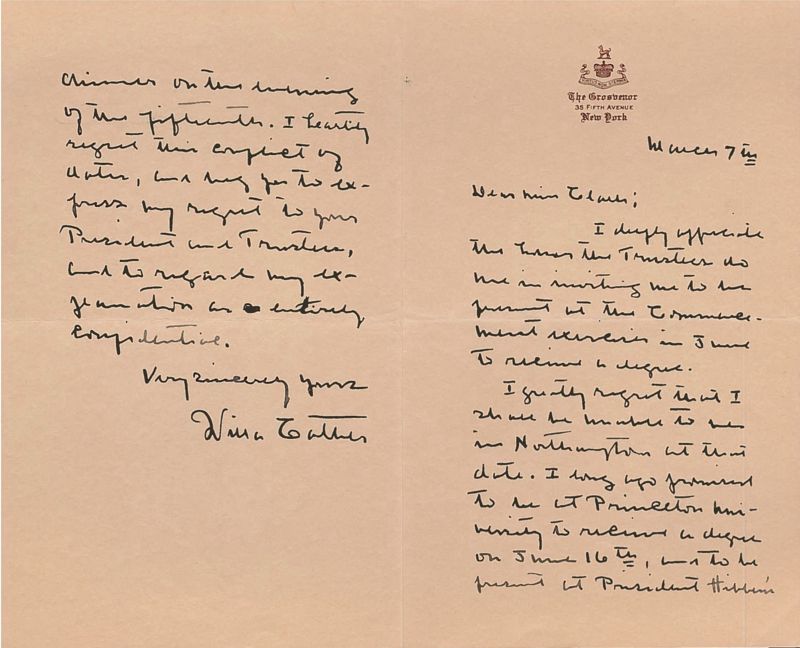 The Grosvenor
35 Fifth Avenue
New York
March 7th
Dear Miss Clark;
I deeply appreciate
the honor the Trustees do
me in inviting me to be
present at the Commence-
ment exercises in June
to receive a degree.
I greatly regret that I
shall be unable to be
in Northampton at that
date. I long ago promised
to be at Princeton Uni-
versity to receive a degree
on June 16th, and to be
present at President Hibben's
dinner on the evening
of the fifteenth. I heartily
regret this conflict of
dates, and beg you to ex-
press my regret to your
President and Trustees,
and to regard my ex-
planation as entirely
confidential.
Very sincerely yours
Willa Cather